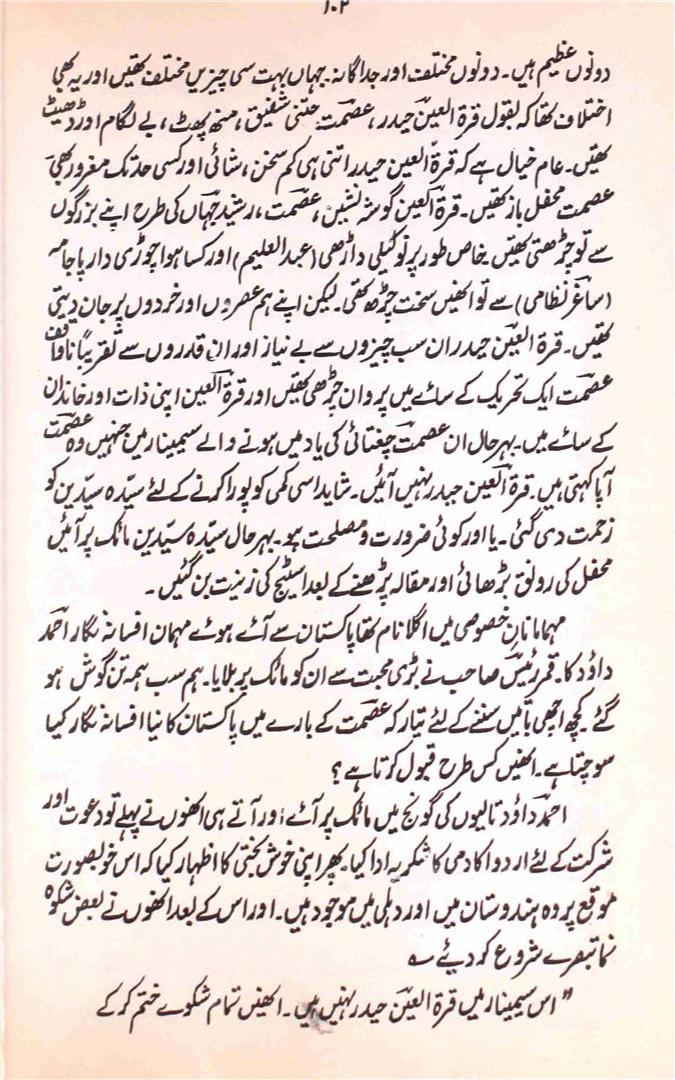 ۱۰۲
دونوں عظیم ہیں۔ دونوں مختلف اور جداگانہ۔ جہاں بہت سی چیزیں مختلف تھیں اور یہ بھی
اختلاف تھا کہ بقول قرۃ العین حیدر، عصمت جتنی شفیق، منھ پھٹ، بے لگام اور ڈھیٹ
تھیں۔ عام خیال ہے کہ قرۃ العین حیدر اتنی ہی کم سخن، شائی اور کسی حد تک مغرور بھی۔
عصمت محفل باز تھیں۔ قرۃ العین گوشہ نشیں، عصمت، رشید جہاں کی طرح اپنے بزرگوں
سے تو چڑھتی تھیں۔ خاص طور پر نوکیلی داڑھی (عبد العلیم) اور کسا ہوا چوڑی دار پاجامہ
(ساغر نظامی) سے تو انھیں سخت چڑھ تھی۔ لیکن اپنے ہم عصروں اور خردوں پر جان دیتی
تھیں۔ قرۃ العین حیدر ان سب چیزوں سے بے نیاز اور ان قدروں سے تقریباً ناواقف
عصمت ایک تحریک کے سائے میں پروان چڑھی تھیں اور قرۃ العین اپنی ذات اور خاندان
کے سائے میں۔ بہرحال ان عصمت چغتائی کی یاد میں ہونے والے سیمینار میں جنہیں وہ عصمت
آپا کہتی ہیں۔ قرۃ العین حیدر نہیں آئیں۔ شاید اسی کمی کو پورا کرنے کے لئے سیّدہ سیّدین کو
زحمت دی گئی۔ یا اور کوئی ضرورت و مصلحت ہو۔ بہرحال سیّدہ سیّدین مائک پر آئیں
محفل کی رونق بڑھائی اور مقالہ پڑھنے کے بعد اسٹیج کی زینت بن گئیں۔
مہمانانِ خصوصی میں اگلا نام تھا پاکستان سے آئے ہوئے مہمان افسانہ نگار احمد
داؤد کا۔ قمر رئیس صاحب نے بڑی محبت سے ان کو مائک پر بلایا۔ ہم سب ہمہ تن گوش ہو
گئے کچھ اچھی باتیں سننے کے لئے تیار کہ عصمت کے بارے میں پاکستان کا نیا افسانہ نگار کیا
سوچتا ہے۔ انھیں کس طرح قبول کرتا ہے؟
احمد داؤد تالیوں کی گونج میں مائک پر آئے اور آتے ہی انھوں نے پہلے تو دعوت اور
شرکت کے لئے اردو اکادمی کا شکریہ ادا کیا۔ پھر اپنی خوش بختی کا اظہار کیا کہ اس خوبصورت
موقع پر وہ ہندوستان میں اور دہلی میں موجود ہیں۔ اور اس کے بعد انھوں نے بعض شکوہ
نما تبصرے شروع کر دیئے ؎
"اس سیمینار میں قرۃ العین حیدر نہیں ہیں۔ انھیں تمام شکوے ختم کر کے